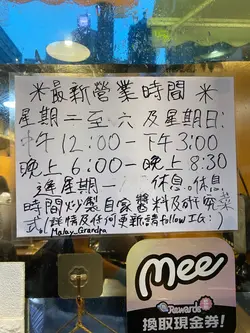 ※最新營業時間※
星期二至六及星期日:
中午12:00-下午3:00
晚上6:00-晚上8:30
逢星期一 休息。休息
時間炒製自家醬料及研究菜
式。(詳情及任何更新請follow IG:)
Malay_Grandpa
mee
Rewards
換取現金券!